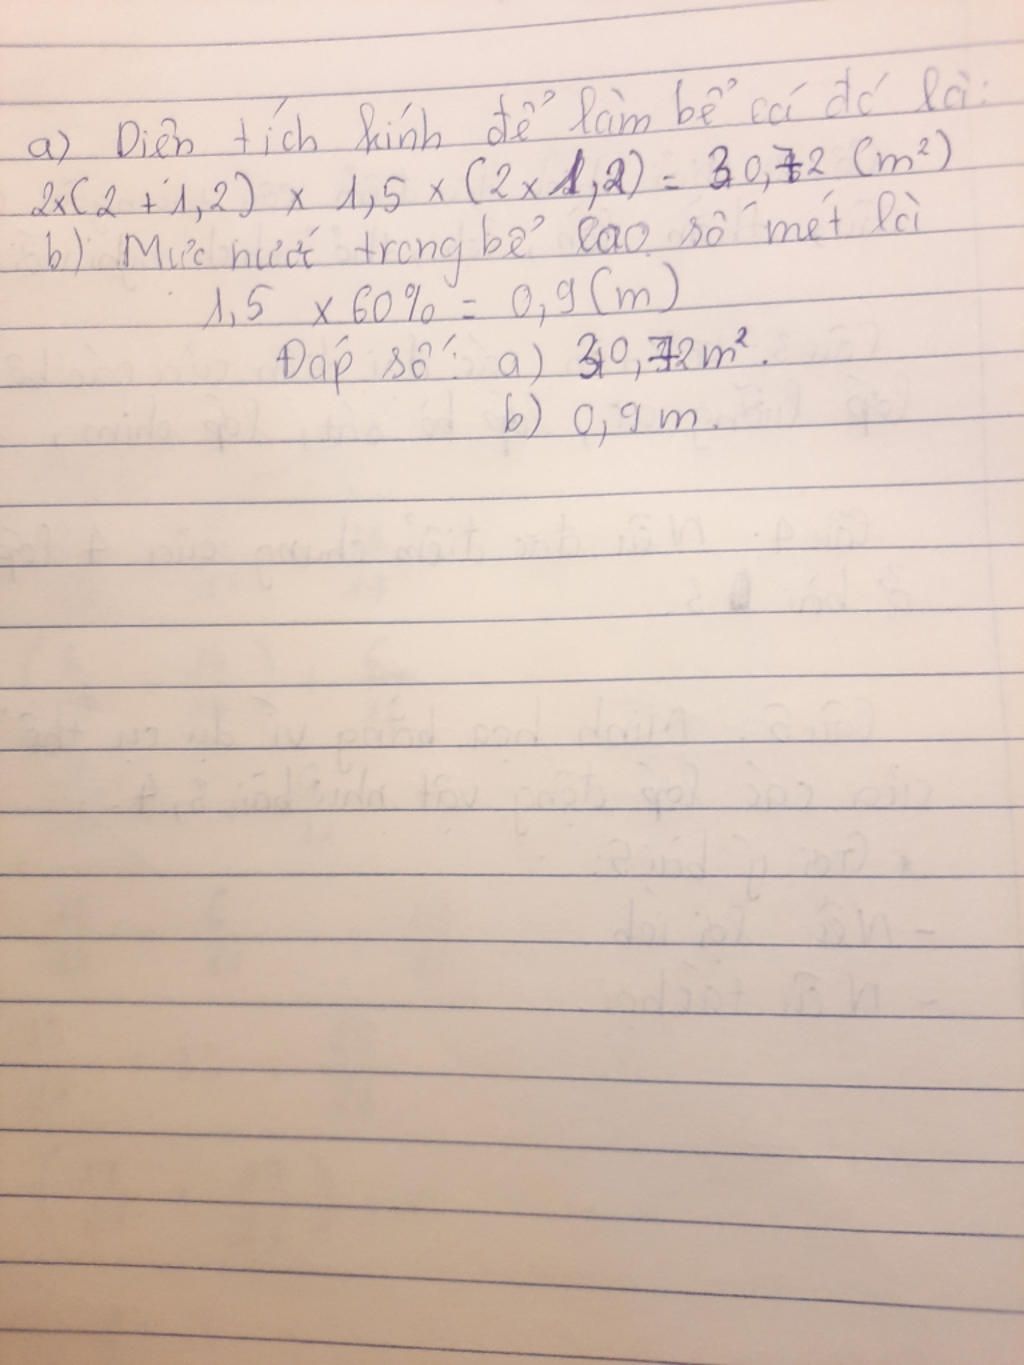 a) Diện tích kính để làm bể cá đó là:
2x(2 + 1,2) x 1,5 x (2 x 1,2) = (m²)
b) Mực nước trong bể cao số mét là
1,5 x 60% = 0,9 (m)
Đáp số: a) m².
b) 0,9 m.